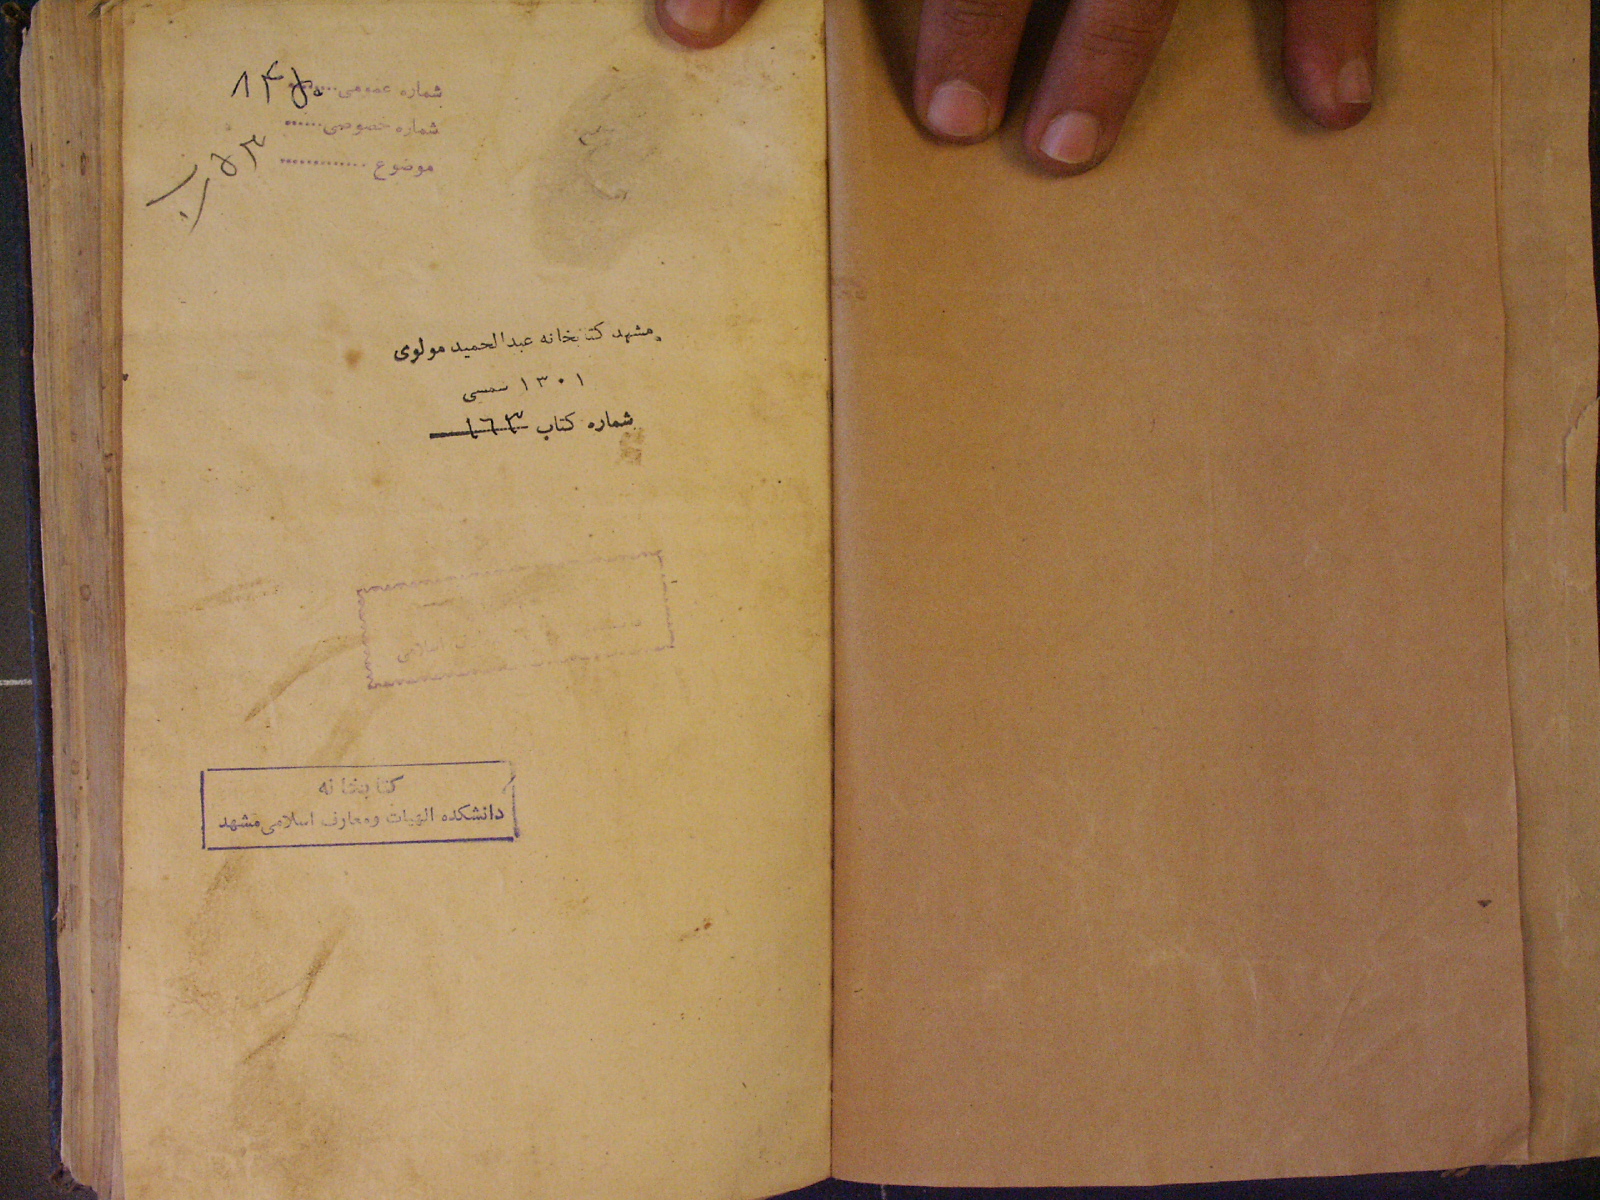 شماره عمومی........
شماره خصوصی......
موضوع .............
مشهد کتابخانه عبدالحمید مولوی
۱۳۰۱ شمسی
شماره کتاب ۱۶۳
اسلامی
کتابخانه
دانشکده الهیات و معارف اسلامی مشهد